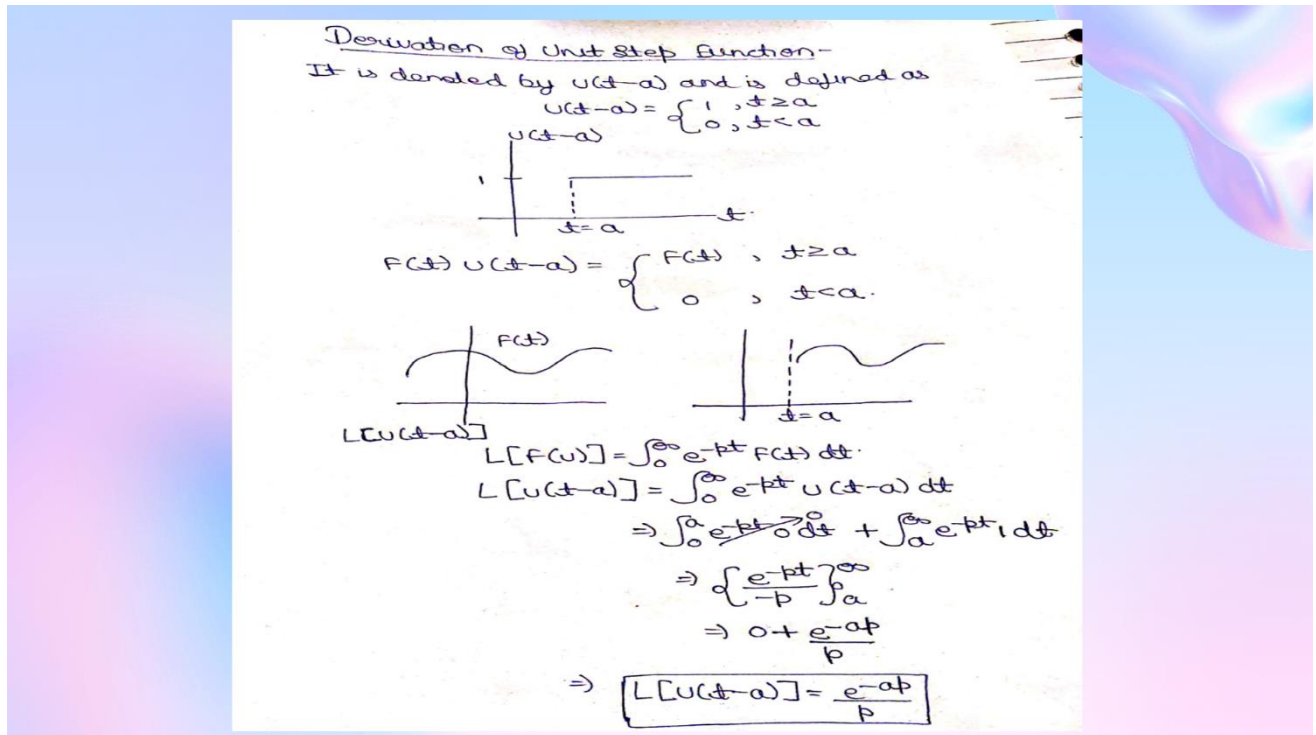 Derivation of Unit Step Function-
It is denoted by U(t-a) and is defined as
U(t-a) = { 1 , t≥a
0 , t<a
U(t-a)
1
t.
t=a
F(t) U(t-a) = { F(t) , t≥a
0 , t<a.
F(t)
t=a
L[U(t-a)]
L[F(u)] = ∫₀^∞ e^-pt F(t) dt.
L[U(t-a)] = ∫₀^∞ e^-pt U(t-a) dt
⇒ ∫₀^a e^-pt 0 dt → 0 + ∫ₐ^∞ e^-pt 1 dt
⇒ { e^-pt / -p }ₐ^∞
⇒ 0 + e^-ap / p
⇒ L[U(t-a)] = e^-ap / p